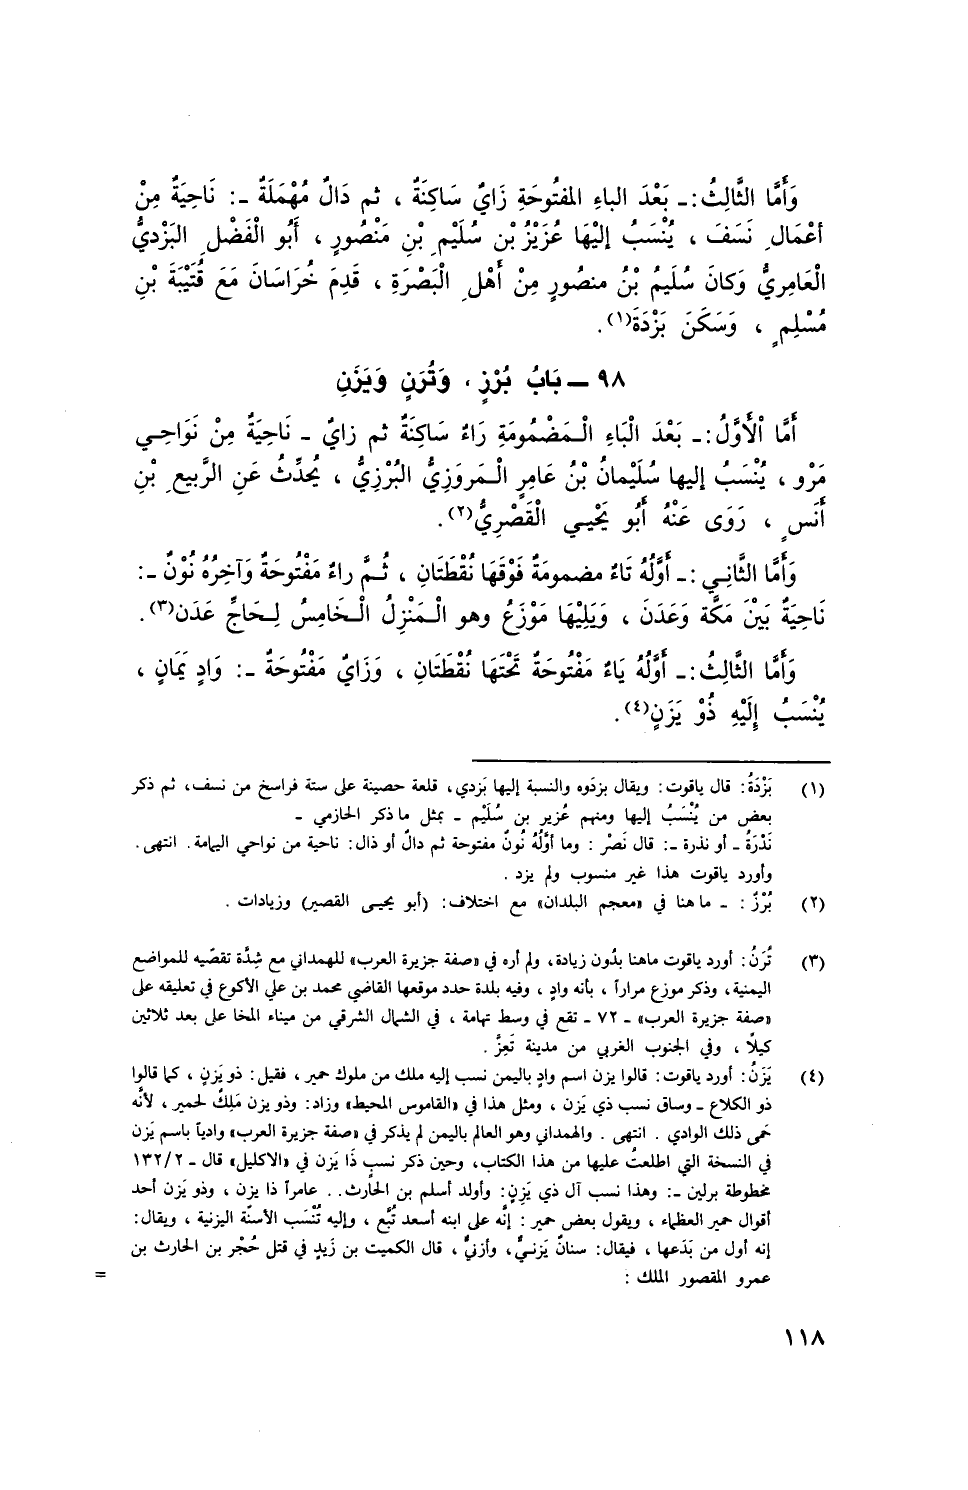 وَأَمَّا الثَّالِثُ :ـ بَعْدَ الباءِ المفتُوحَةِ زَايٌ سَاكِنَةٌ ، ثم دَالٌ مُهْمَلَةٌ ـ: نَاحِيَةٌ مِنْ
أعْمَالِ نَسَفَ ، يُنْسَبُ إليْهَا عُزَيْزُ بْن سُلَيْمِ بْنِ مَنْصُورٍ ، أَبُو الْفَضْلِ البَزْدِيُّ
الْعَامِرِيُّ وَكانَ سُلَيمُ بْنُ منصُورٍ مِنْ أَهْلِ الْبَصْرَةِ ، قَدِمَ خُرَاسَانَ مَعَ قُتَيْبَةَ بْنِ
مُسْلِمٍ ، وَسَكَنَ بَزْدَةَ(١).
٩٨ ـ بَابُ بُرْزٍ ، وَتُرَنٍ وَيَزَنٍ
أَمَّا اْلأَوَّلُ :ـ بَعْدَ الْبَاءِ الْمَضْمُومَةِ رَاءٌ سَاكِنَةٌ ثم زايٌ ـ نَاحِيَةٌ مِنْ نَوَاحِي
مَرْو ، يُنْسَبُ إليها سُلَيْمانُ بْنُ عَامِرٍ الْمَروَزِيُّ البُرْزِيُّ ، يُحَدِّثُ عَنِ الرَّبيعِ بْنِ
أَنَسٍ ، رَوَى عَنْهُ أَبُو يَحْيي الْقَصْرِيُّ(٢).
وَأَمَّا الثَّانِي :ـ أَوَّلُهُ تَاءٌ مضمومَةٌ فَوْقَهَا نُقْطَتَانِ ، ثُمَّ راءٌ مَفْتُوحَةٌ وَآخِرُهُ نُوْنٌ ـ:
نَاحِيَةٌ بَيْنَ مَكَّة وَعَدَنَ ، وَيَلِيْهَا مَوْزَعُ وهو الْمَنْزِلُ الْخَامِسُ لِحَاجِّ عَدَن(٣).
وَأَمَّا الثَّالِثُ :ـ أَوَّلُهُ يَاءٌ مَفْتُوحَةٌ تَحْتَهَا نُقْطَتَانِ ، وَزَايٌ مَفْتُوحَةٌ ـ: وَادٍ يَمَانٍ ،
يُنْسَبُ إِلَيْهِ ذُوْ يَزَنٍ(٤).
(١) بَزْدَةُ: قال ياقوت: ويقال بزدَوه والنسبة إليها بَزدي، قلعة حصينة على ستة فراسخ من نسف، ثم ذكر
بعض من يُنْسَبُ إليها ومنهم عُزير بن سُلَيْم ـ بمثل ماذكر الحازمي ـ
نَدْرَةُ ـ أو نذرة ـ: قال نَصْر : وما أوَّلُهُ نُونٌ مفتوحة ثم دالٌ أو ذال: ناحية من نواحي اليمامة. انتهى.
وأورد ياقوت هذا غير منسوب ولم يزد .
(٢) بُرْزٌ : ـ ماهنا في «معجم البلدان» مع اختلاف: (أبو يحيى القصير) وزيادات .
(٣) تُرَنُ: أورد ياقوت ماهنا بدُون زيادة، ولم أره في «صفة جزيرة العرب» للهمداني مع شِدَّة تقصّيه للمواضع
اليمنية، وذكر موزع مراراً ، بأنه وادٍ ، وفيه بلدة حدد موقعها القاضي محمد بن علي الأكوع في تعليقه على
«صفة جزيرة العرب» ـ ٧٢ ـ تقع في وسط تهامة ، في الشمال الشرقي من ميناء المخا على بعد ثلاثين
كيلًا ، وفي الجنوب الغربي من مدينة تَعِزُّ .
(٤) يَزَنُ: أورد ياقوت: قالوا يزن اسم وادٍ باليمن نسب إليه ملك من ملوك حمير ، فقيل: ذو يَزنٍ ، كما قالوا
ذو الكلاع ـ وساق نسب ذي يَزن ، ومثل هذا في «القاموس المحيط» وزاد: وذو يزن مَلِكٌ لحمير ، لأنَّه
حَمى ذلك الوادي . انتهى . والهمداني وهو العالم باليمن لم يذكر في «صفة جزيرة العرب» وادياً باسم يَزن
في النسخة التي اطلعتُ عليها من هذا الكتاب، وحين ذكر نسبٍ ذَا يَزن في «الاكليل» قال ـ ١٣٢/٢
مخطوطة برلين ـ: وهذا نسب آل ذي يَزِنٍ: وأولد أسلم بن الحارث.. عامراً ذا يزن ، وذو يَزن أحد
أقوال حمير العظماء ، ويقول بعض حمير : إنَّه على ابنه أسعد تُبَّع ، وإليه تُنْسَب الأسنّة اليزنية ، ويقال:
إنه أول من بَدَعها ، فيقال: سنانٌ يَزنيٌّ، وأزنيٌّ ، قال الكميت بن زَيدٍ في قتل حُجْر بن الحارث بن
عمرو المقصور الملك :
=
١١٨